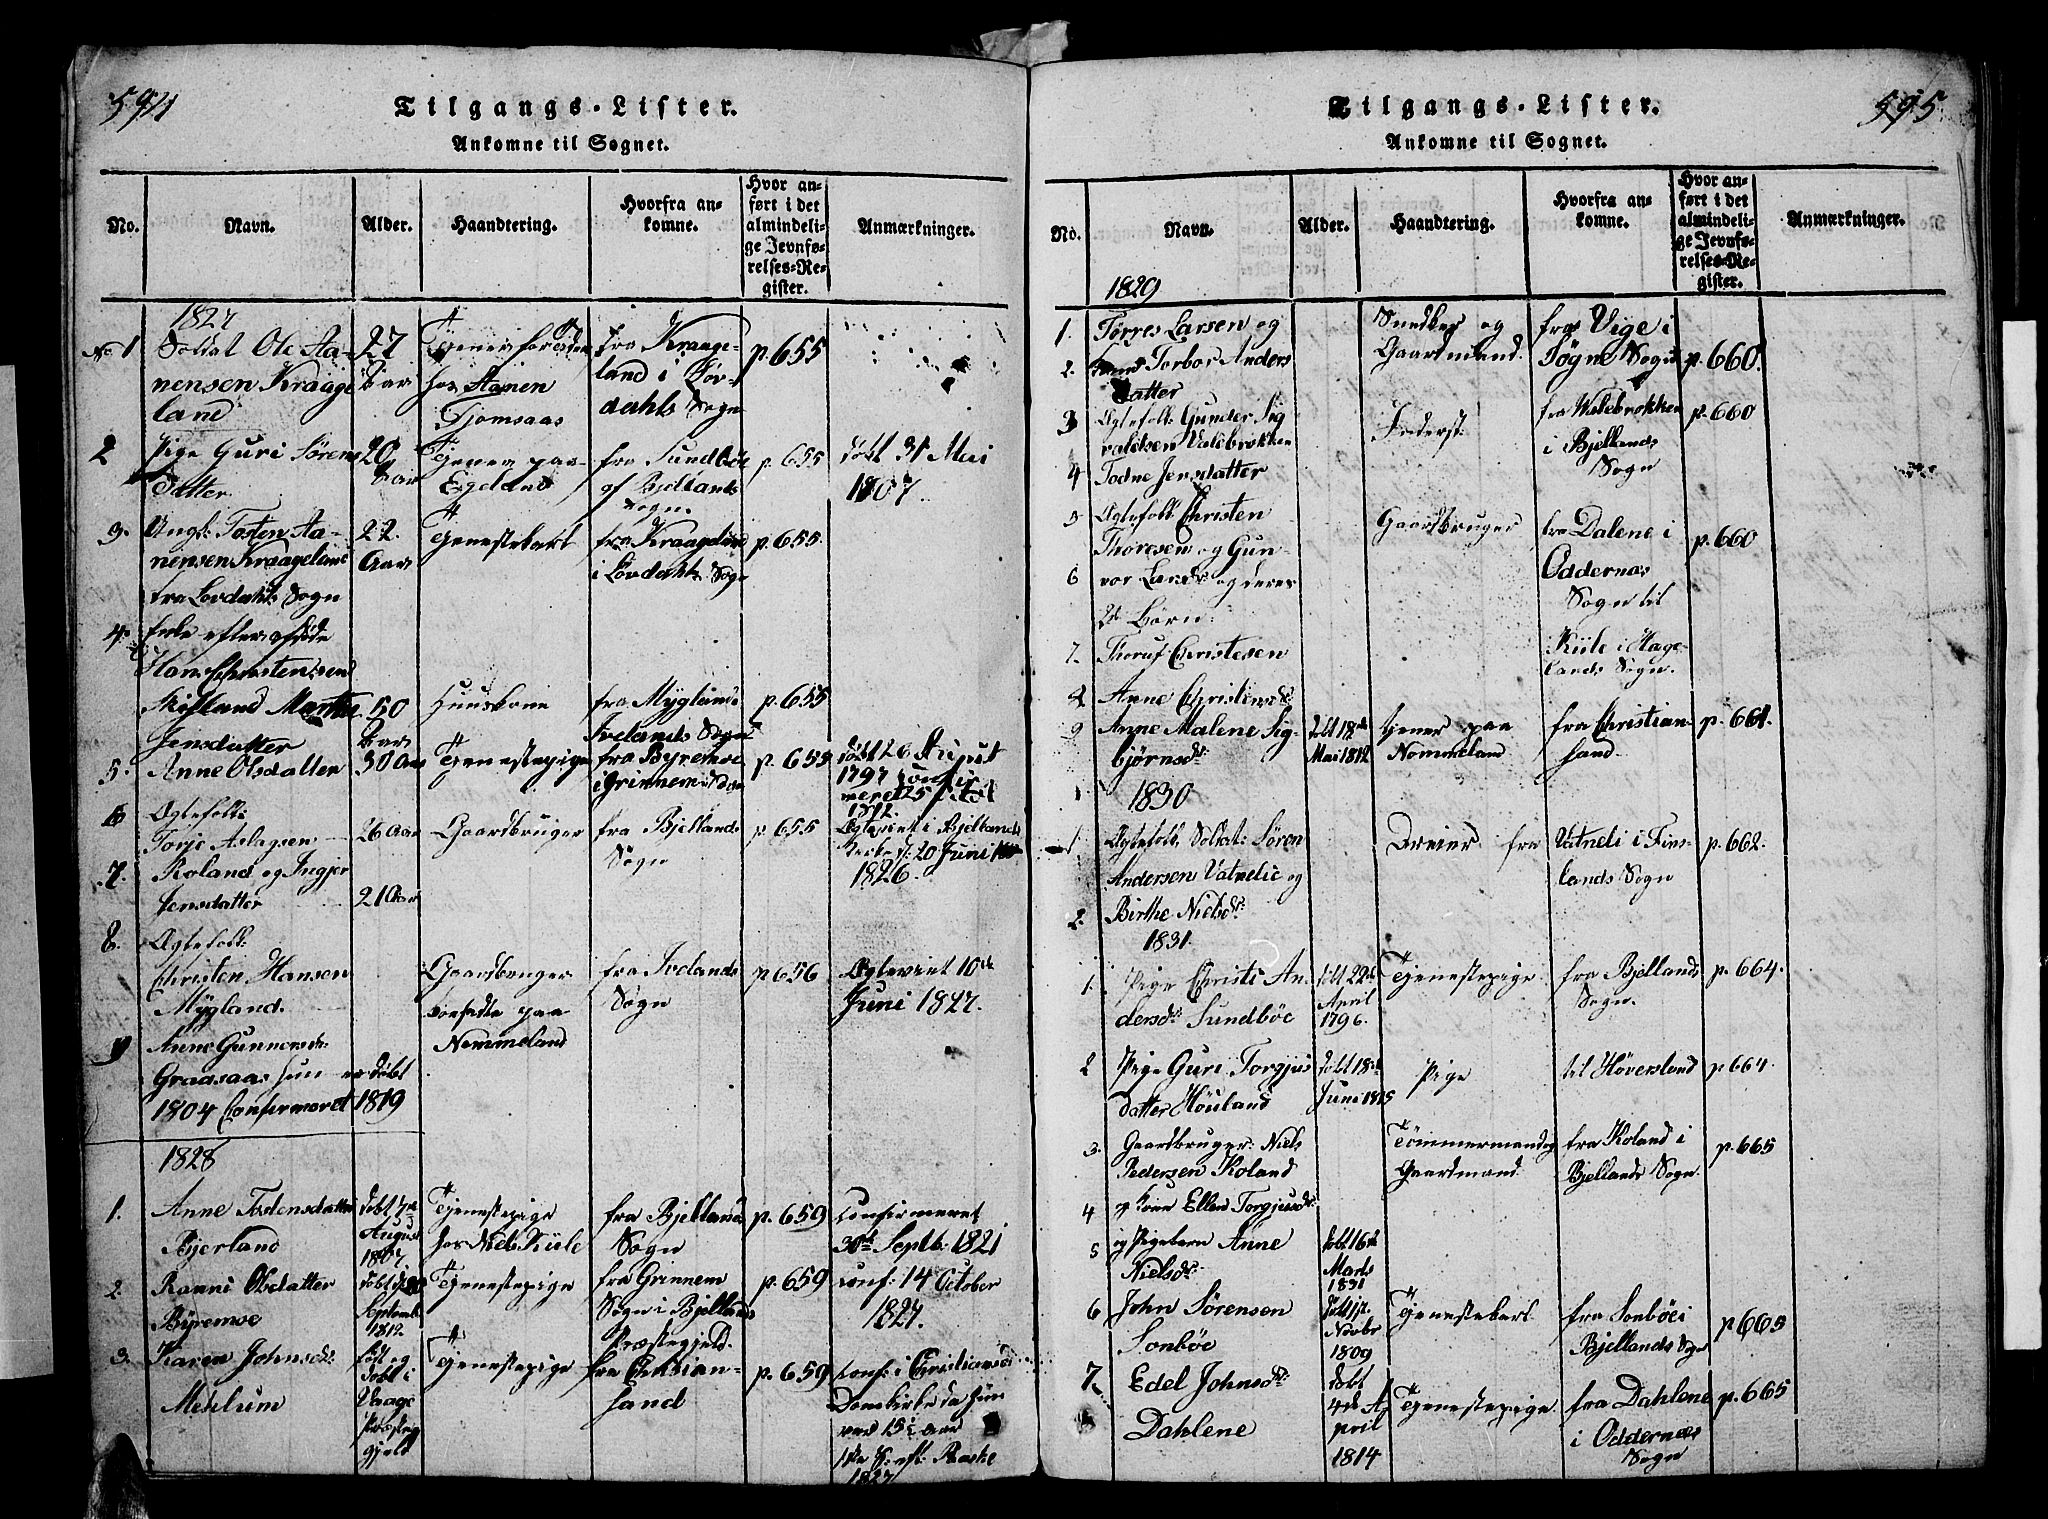 594
Tilgangs-Lister.
Ankomne til Sognet.
No.
Navn.
Alder.
Haandtering.
Hvorfra an-
komne.
Hvor an-
ført i det
almindeli-
ge Jevnfø-
relses-Re-
gister.
Anmærkninger.
1827
No 1
Soldat Ole Aa-
nensen Kraage
land
27
Aar
Tjener
hos Aanen
Tjomsaas
fra Kraage-
land i Løv-
dahls Sogn
p. 655
2
Pige Guri Sørens
Datter
20
Aar
Tjener paa
Egeland
fra Sundbøe
af Bjellands
Sogn.
p. 655
Født 31 Mai
1807.
3.
Ungk: Tosten Aa-
nensen Kraageland
fra Lovdahls Sogn
22.
Aar
Tjenestekarl
fra Kraageland
i Lovdahls Sogn
p. 655
4.
Enke efter afdøde
Hans Christensen
Skisland Marthe
Jensdatter
50
Aar
Huuskone
fra Myglands
Ivelands Sogn
p. 655
5.
Anne Olsdatter
30 Aar
Tjenestepige
fra Byremoe
i Grinnem Sogn
p. 655
Født 26 August
1797 Confir
meret 25
1812.
6
Ægtefolk:
Torje Aslagsen
26 Aar
Gaardbruger
fra Bjellands
Sogn
p. 655
Egteviet i Bjellands
Kirke d: 20 Juni
1826.
7.
Roland og Ingjer
Jensdatter
21 Aar
8.
Ægtefolk:
Christen Hansen
Mygland.
Gaardbruger
bosadte paa
Nommeland
fra Ivelands
Sogn
p. 656
Egteviet 10de
Juni 1827.
9
Anne Gunnersdr:
Graasaas hun er født
1804 Confirmeret 1819
1828
1.
Anne Tostensdatter
Bjerland
Født 7de
August
1807
Tjenestepige
hos Niels Kiile
fra Bjellands
Sogn
p. 659
Confirmeret
30te Septb: 1821
2.
Ranni Olsdatter
Byremoe
Født d:
Septemb
1812.
Tjenestepige
fra Grinnem
Sogn i Bjellands
Præstegjeld.
p. 659
Conf: 14 October
1827.
3.
Karen Johnsdr:
Mehlum
Født og
Døbt i
Vaage
Præste
gjeld
Tjenestepige
fra Christian-
sand
p. 659
Conf: i Christiansds
Domkirke da hun
var 15 i aar
1ste S: eft: Paaske
1827
595
Tilgangs-Lister.
Ankomne til Sognet.
No.
Navn.
Alder.
Haandtering.
Hvorfra an-
komne.
Hvor an-
ført i det
almindeli-
ge Jevnfø-
relses-Re-
gister.
Anmærkninger.
1829
1.
Tørres Larsen og
Snedker og
Gaardmand.
fra Vige i
Søgne Sogn
p. 660.
2.
Torbor Anders
Datter
3
Ægtefolk: Gunder Sig
valdsen Valebrokken
Inderst:
fra Valebrokken
i Bjellands
Sogn
p. 660
4
Todne Jensdatter
5
Ægtefolk Christen
Thoresen og Gun-
Gaardbruger
fra Dalene i
Oddernæs
Sogn til
Kiile i Høge-
lands Sogn.
p. 660
6
vor Larsdr og deres
2de Børn:
7.
Thoruf Christesen
8
Anne Christensdr
9
Anne Malene Sig-
bjørnsdr:
Født 18de
Mai 1812
tjener paa
Nommeland
fra Christian-
sand.
p. 661.
1830
1
Ægtefolk, Soldat: Søren
Andersen Vatnelie og
Dreier fra
Vatneli i Fins-
lands Sogn
p. 662.
2.
Birthe Nielsdr.
1831.
1.
Pige Christi An-
dersdr: Sundbøe
Født 22de
April
1796.
Tjenestepige
fra Bjellands
Sogn.
p. 664.
2
Pige Guri Torgjus
datter Høuland
Født 18de
Juni 1815
Pige
til Høversland
p 664.
3.
Gaardbruger: Niels
Pedersen Koland
Tømmermand og
Gaardmand.
fra Koland i
Bjellands Sogn.
p. 665
4
og Kone Ellen Torgjusdr:
5
og Pigebarn Anne
Nielsdr:
Født 16de
Marts
1831
6
John Sørensen
Sonbøe
Novbr
1809
Tjenestekarl
fra Sonbøe i
Bjellands Sogn
p. 665
7.
Edel Johnsdr:
Dahlene
Født
4de A
pril
1814
Tjenestepige
fra Dahlene
i Oddernæs
Sogn
p. 665